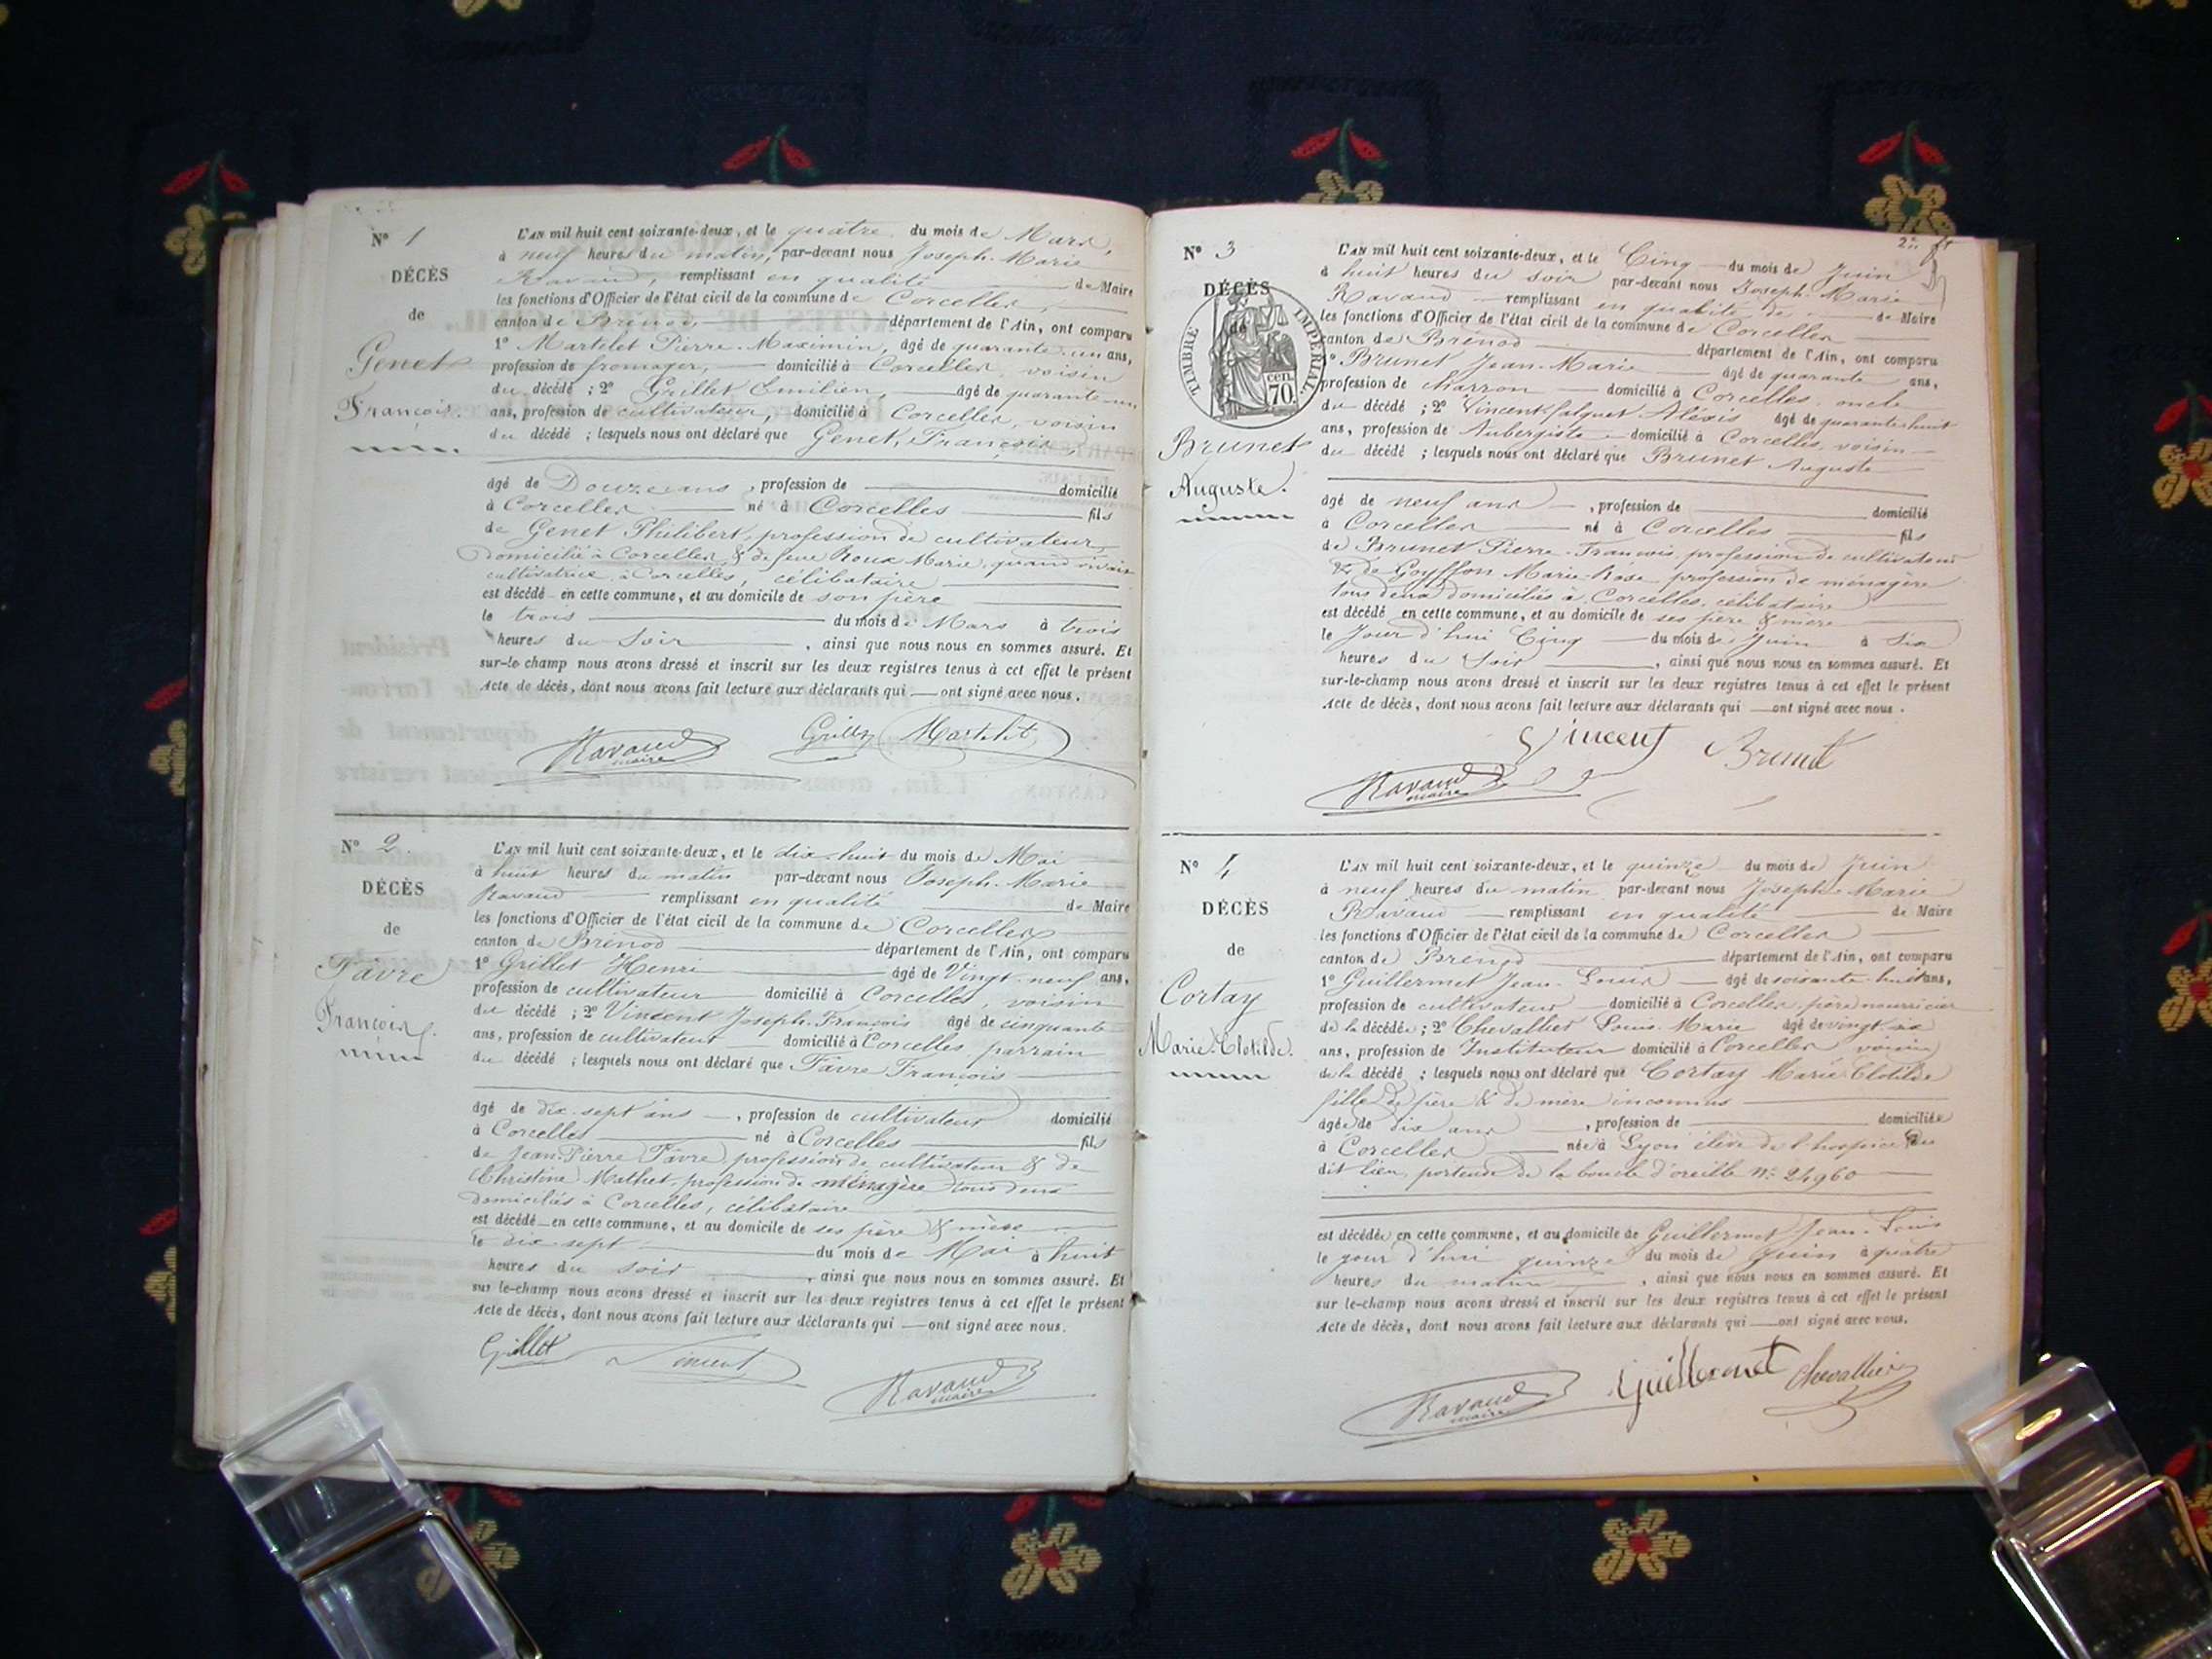 N° 1
DÉCÈS
de
Genet
François.
L'AN mil huit cent soixante-deux, et le quatre du mois de Mars,
à neuf heures du matin, par-devant nous Joseph-Marie
Ravaud, remplissant en qualité de Maire
les fonctions d'Officier de l'état civil de la commune de Corcelles,
canton de Brénod, département de l'Ain, ont comparu
1° Martelet Pierre-Maximin, âgé de quarante-un ans,
profession de fromager, domicilié à Corcelles, voisin
du décédé ; 2° Grillet Emilien, âgé de quarante-un
ans, profession de cultivateur, domicilié à Corcelles, voisin
du décédé ; lesquels nous ont déclaré que Genet, François,
âgé de Douze ans, profession de domicilié
à Corcelles né à Corcelles fils
de Genet Philibert, profession de cultivateur,
domicilié à Corcelles, & de feue Roux Marie, quand vivait
cultivatrice à Corcelles, célibataire
est décédé en cette commune, et au domicile de son père
le trois du mois de Mars à trois
heures du soir, ainsi que nous nous en sommes assuré. Et
sur-le champ nous avons dressé et inscrit sur les deux registres tenus à cet effet le présent
Acte de décès, dont nous avons fait lecture aux déclarants qui ont signé avec nous.
Ravaud
maire
Grillet Martelet
N° 2.
DÉCÈS
de
Favre
François.
L'AN mil huit cent soixante-deux, et le dix-huit du mois de Mai
à huit heures du matin par-devant nous Joseph-Marie
Ravaud remplissant en qualité de Maire
les fonctions d'Officier de l'état civil de la commune de Corcelles
canton de Brénod département de l'Ain, ont comparu
1° Grillet Henri âgé de Vingt-neuf ans,
profession de cultivateur domicilié à Corcelles, voisin
du décédé ; 2° Vincent Joseph-François âgé de cinquante
ans, profession de cultivateur domicilié à Corcelles, parrain
du décédé ; lesquels nous ont déclaré que Favre François
âgé de dix-sept ans, profession de cultivateur domicilié
à Corcelles né à Corcelles fils
de Jean-Pierre Favre, profession de cultivateur & de
Christine Mathet, profession de ménagère tous deux
domiciliés à Corcelles, célibataire
est décédé en cette commune, et au domicile de ses père & mère
le dix-sept du mois de Mai à huit
heures du soir, ainsi que nous nous en sommes assuré. Et
sur le-champ nous avons dressé et inscrit sur les deux registres tenus à cet effet le présent
Acte de décès, dont nous avons fait lecture aux déclarants qui ont signé avec nous.
Grillet Vincent
Ravaud
maire
2e ft
N° 3
DÉCÈS
de
TIMBRE IMPÉRIAL
cen.
70.
Brunet
Auguste.
L'AN mil huit cent soixante-deux, et le Cinq du mois de Juin
à huit heures du soir par-devant nous Joseph-Marie
Ravaud remplissant en qualité de de Maire
les fonctions d'Officier de l'état civil de la commune de Corcelles
canton de Brénod département de l'Ain, ont comparu
1° Brunet Jean-Marie âgé de quarante ans,
profession de charron domicilié à Corcelles, oncle
du décédé ; 2° Vincent Aléxis âgé de quarante-huit
ans, profession de Aubergiste domicilié à Corcelles, voisin
du décédé ; lesquels nous ont déclaré que Brunet Auguste
âgé de neuf ans, profession de domicilié
à Corcelles né à Corcelles fils
de Brunet Pierre-François, profession de cultivateur
& de Goyffon Marie-Rose profession de ménagère
tous deux domiciliés à Corcelles, célibataire
est décédé en cette commune, et au domicile de ses père & mère
le Jour d'hui Cinq du mois de Juin à Six
heures du Soir, ainsi que nous nous en sommes assuré. Et
sur-le-champ nous avons dressé et inscrit sur les deux registres tenus à cet effet le présent
Acte de décès, dont nous avons fait lecture aux déclarants qui ont signé avec nous.
Vincent Brunet
Ravaud
maire
N° 4
DÉCÈS
de
Cortay
Marie-Clotilde.
L'AN mil huit cent soixante-deux, et le quinze du mois de Juin
à neuf heures du matin par-devant nous Joseph-Marie
Ravaud remplissant en qualité de Maire
les fonctions d'Officier de l'état civil de la commune de Corcelles
canton de Brénod département de l'Ain, ont comparu
1° Guillermet Jean-Louis âgé de soixante-huit ans,
profession de cultivateur domicilié à Corcelles, père nourricier
de la décédée ; 2° Chevallier Louis-Marie âgé de vingt-six
ans, profession de Instituteur domicilié à Corcelles voisin
de la décédé ; lesquels nous ont déclaré que Cortay Marie-Clotilde
fille de père & de mère inconnus
âgée de dix ans, profession de domiciliée
à Corcelles née à Lyon élève de l'hospice du
dit lieu, portant de la boucle d'oreille N° 24960
est décédée en cette commune, et au domicile de Guillermet Jean-Louis
le jour d'hui quinze du mois de Juin à quatre
heures du matin, ainsi que nous nous en sommes assuré. Et
sur le-champ nous avons dressé et inscrit sur les deux registres tenus à cet effet le présent
Acte de décès, dont nous avons fait lecture aux déclarants qui ont signé avec nous.
Ravaud
maire
Guillermet Chevallier